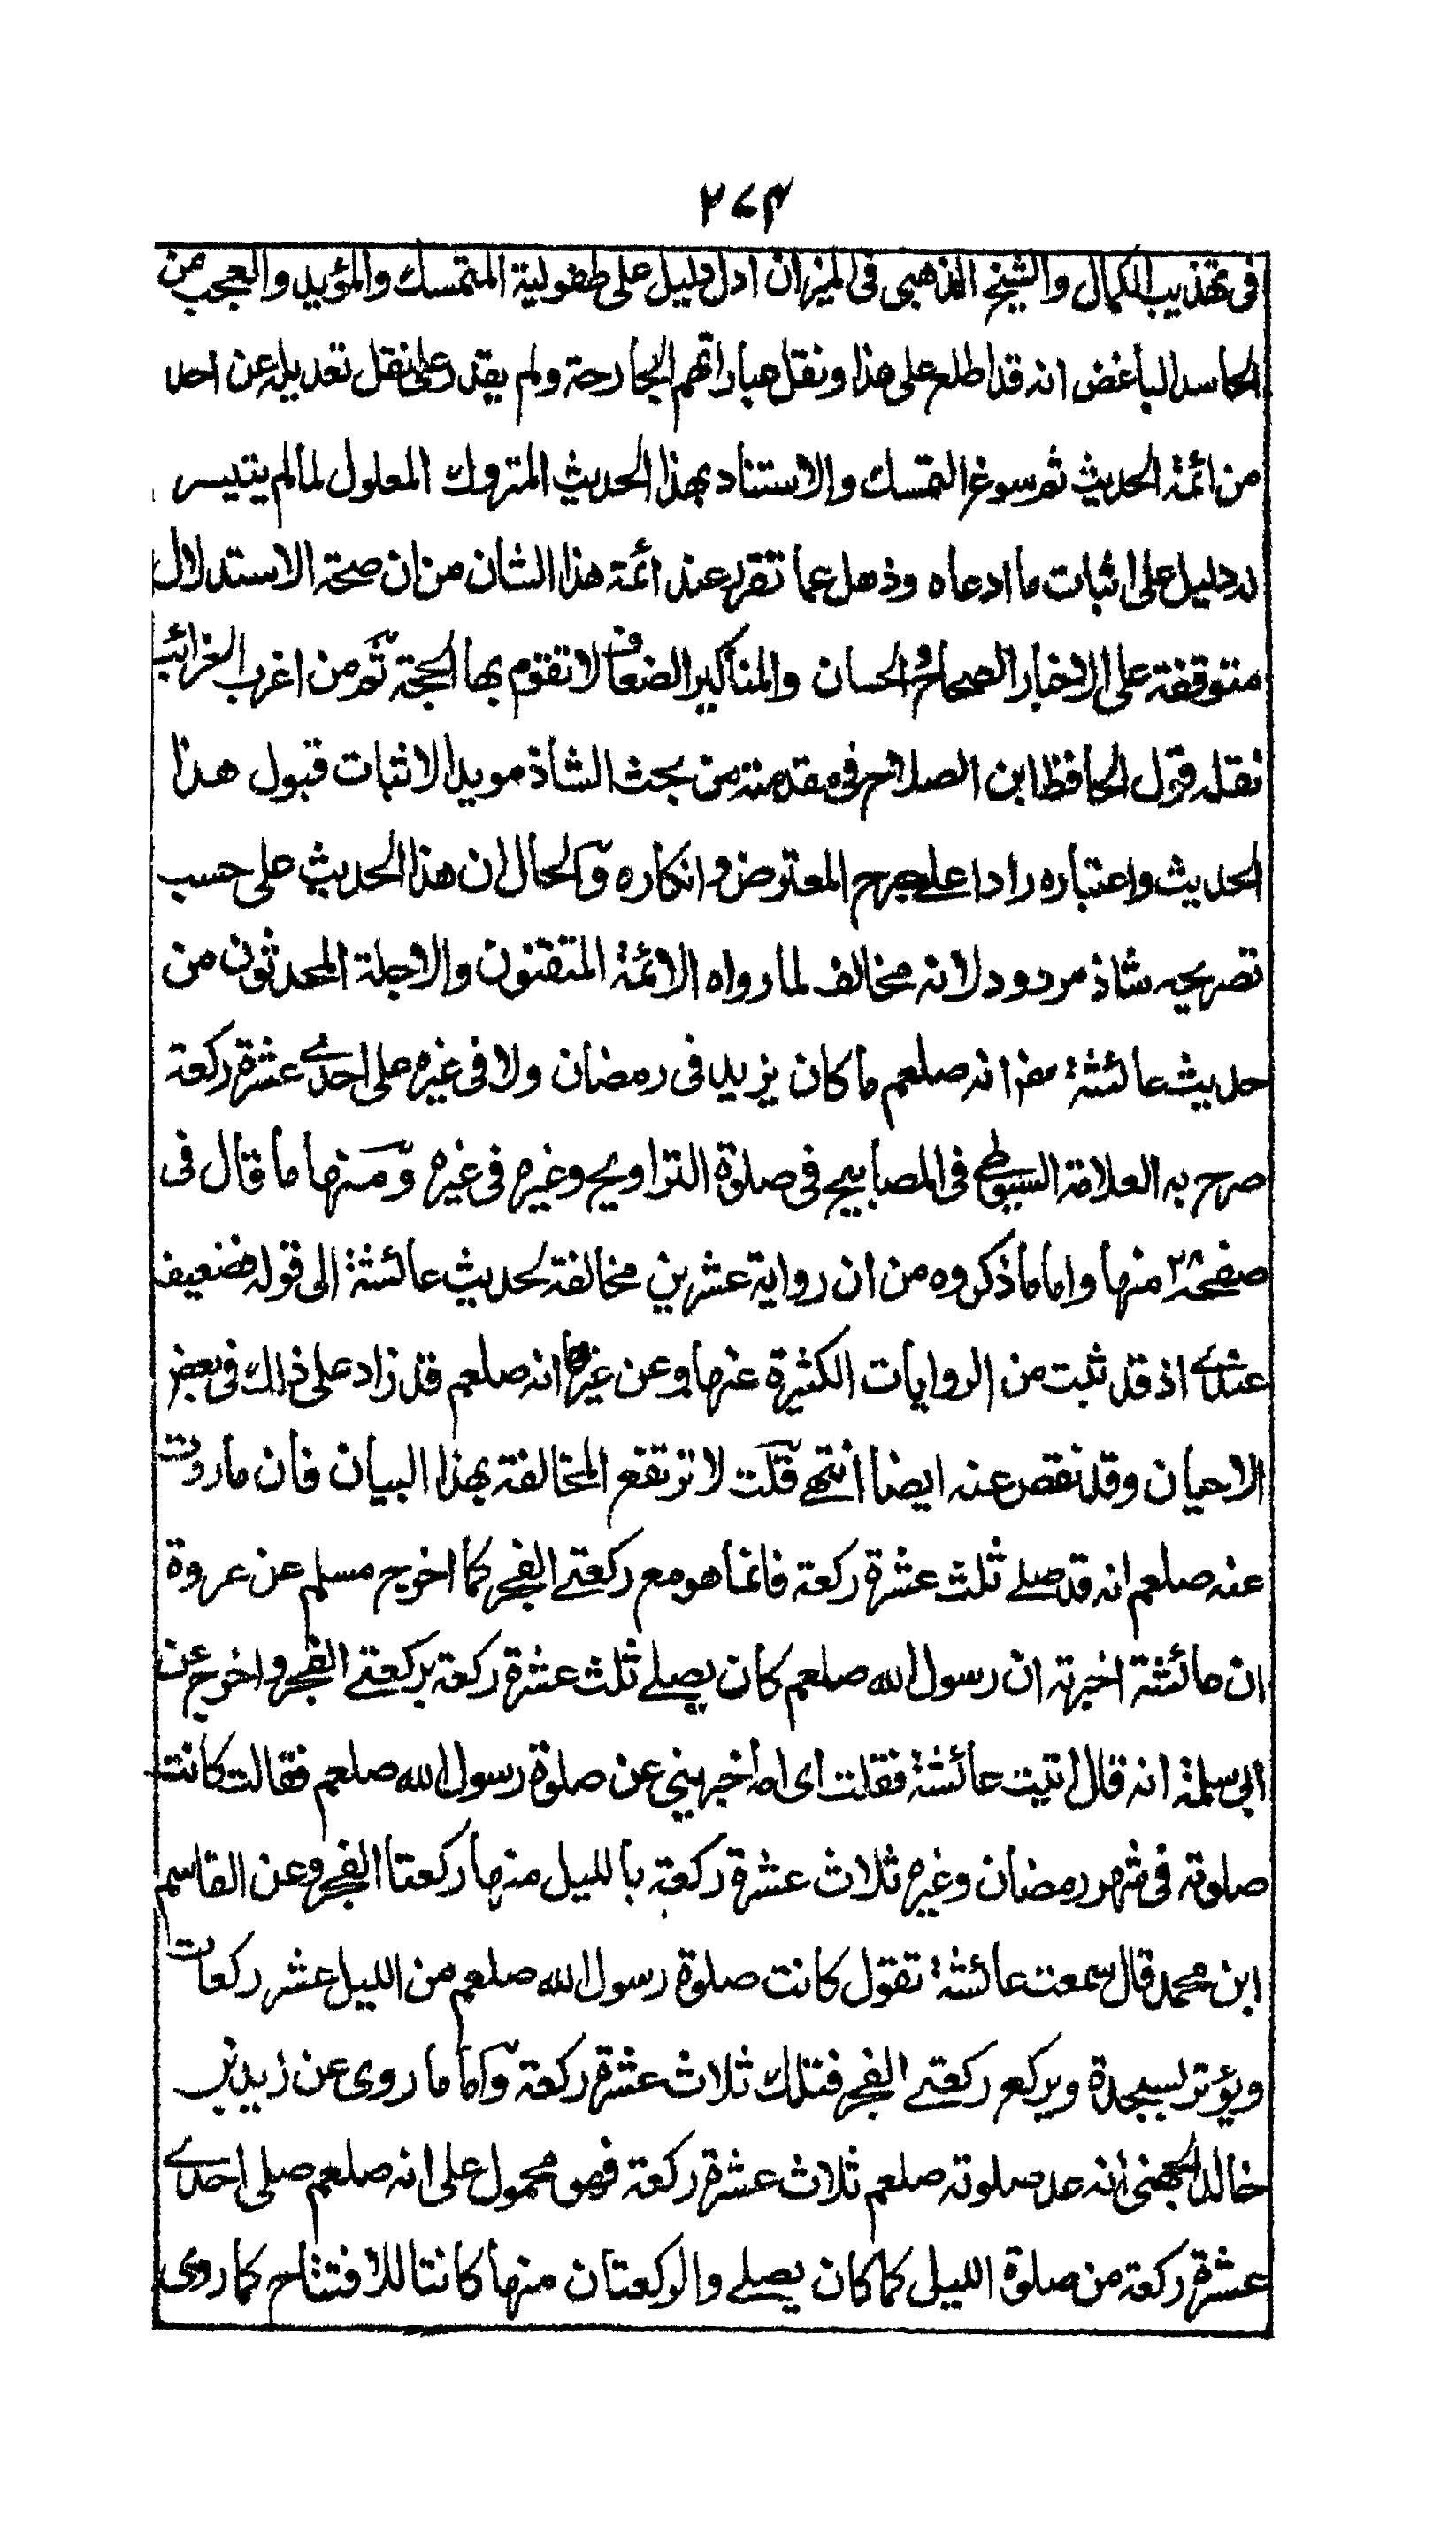 ۲۷۴
فى تهذيب الكمال والشيخ الذهبى فى الميزان ادل دليل على طفولية المتمسك والمؤيد والعجب من
الحاسد الباغض انه قد اطلع على هذا ونقل عباراتهم الجارحة ولم يقدر على نقل تعديله عن احد
من ائمة الحديث ثم سوغ التمسك والاستناد بهذا الحديث المتروك المعلول لما لم يتيسر
له دليل على اثبات ما ادعاه وذهل عما تقرر عند ائمة هذا الشان من ان صحة الاستدلال
متوقفة على الاخبار الصحاح والحسان والمناكير الضعاف لا تقوم بها الحجة ثم من اغرب الغرائب
نقله قول الحافظ ابن الصلاح فى مقدمته من بحث الشاذ مويدا لاثبات قبول هذا
الحديث واعتباره رادا على جرح المعترض وانكاره والحال ان هذا الحديث على حسب
تصريحه شاذ مردود لانه مخالف لما رواه الائمة المتقنون والاجلة المحدثون من
حديث عائشة رضى انه صلعم ما كان يزيد فى رمضان ولا فى غيره على احدے عشرة ركعة
صرح به العلامة السيوطى فى المصابيح فى صلوة التراويح وغيره فى غيره ومنها ما قال فى
صفحه ۲۸ منها واما ما ذكروه من ان رواية عشرين مخالفة لحديث عائشة الى قوله فضعيف
عندے اذ قد ثبت من الروايات الكثيرة عنها وعن غيرها انه صلعم قد زاد على ذلك فى بعض
الاحيان وقد نقص عنه ايضا انتهى قلت لا ترتفع المخالفة بهذا البيان فان ما روت
عنه صلعم انه قد صلے ثلث عشرة ركعة فانما هو مع ركعتے الفجر كما اخرج مسلم عن عروة
ان عائشة اخبرته ان رسول الله صلعم كان يصلے ثلث عشرة ركعة بركعتے الفجر واخرج عن
ابى سلمة انه قال اتيت عائشة فقلت اى امه اخبرينى عن صلوة رسول الله صلعم فقالت كانت
صلوته فى شهر رمضان وغيره ثلاث عشرة ركعة بالليل منها ركعتا الفجر وعن القاسم
ابن محمد قال سمعت عائشة تقول كانت صلوة رسول الله صلعم من الليل عشر ركعات
ويؤتر بسجدة ويركع ركعتے الفجر فتلك ثلاث عشرة ركعة واما ما روى عن زيد بن
خالد الجهنى انه عد صلوته صلعم ثلاث عشرة ركعة فهو محمول على انه صلعم صلى احدے
عشرة ركعة من صلوة الليل كما كان يصلے والركعتان منها كانتا للافتتاح كما روى